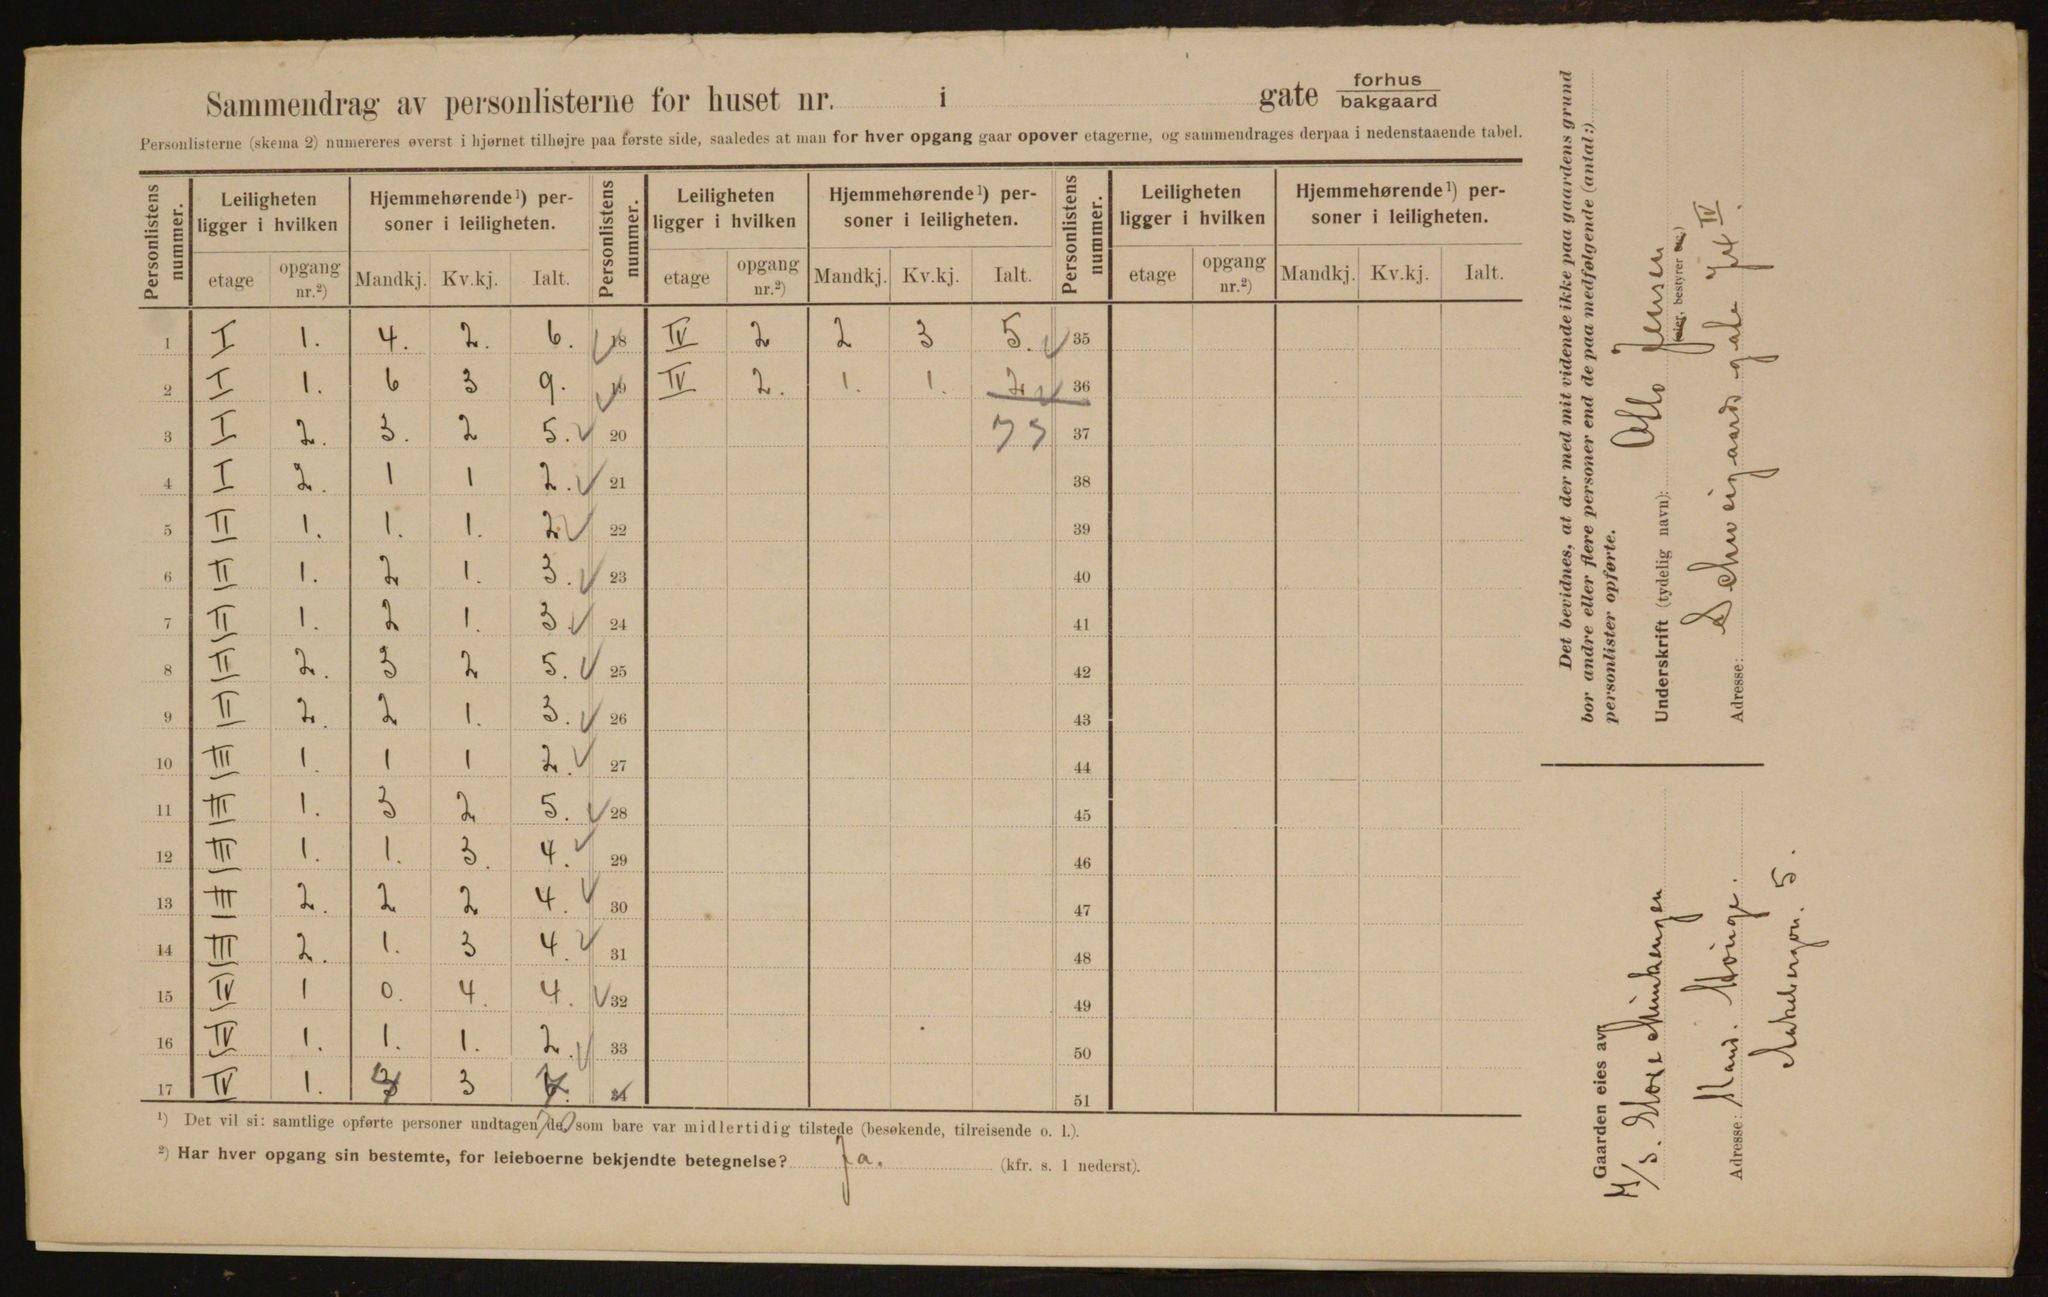 Sammendrag av personlisterne for huset nr. i gate forhus bakgaard
Personlisterne (skema 2) numereres øverst i hjørnet tilhøjre paa første side, saaledes at man for hver opgang gaar opover etagerne, og sammendrages derpaa i nedenstaaende tabel.
Personlistens nummer. Leiligheten ligger i hvilken Hjemmehørende¹) personer i leiligheten. Personlistens nummer. Leiligheten ligger i hvilken Hjemmehørende¹) personer i leiligheten. Personlistens nummer. Leiligheten ligger i hvilken Hjemmehørende¹) personer i leiligheten.
etage opgang nr.²) Mandkj. Kv.kj. Ialt. etage opgang nr.²) Mandkj. Kv.kj. Ialt. etage opgang nr.²) Mandkj. Kv.kj. Ialt.
1 I 1. 4. 2. 6. 18 IV 2 2 3 5. 35
2 I 1. 6 3 9. 19 IV 2. 1. 1. 2 36
3 I 2. 3. 2 5. 20 37
4 I 2. 1 1 2. 21 38
5 II 1. 1. 1. 2 22 39
6 II 1. 2 1. 3. 23 40
7 II 1. 2 1. 3. 24 41
8 II 2. 3 2 5. 25 42
9 II 2. 2 1. 3. 26 43
10 III 1. 1 1 2. 27 44
11 III 1. 3 2 5. 28 45
12 III 1. 1. 3. 4. 29 46
13 III 2. 2 2 4. 30 47
14 III 2. 1. 3 4. 31 48
15 IV 1 0. 4. 4. 32 49
16 IV 1. 1. 1. 2. 33 50
17 IV 1. 3 34 51
¹) Det vil si: samtlige opførte personer undtagen de som bare var midlertidig tilstede (besøkende, tilreisende o. l.).
²) Har hver opgang sin bestemte, for leieboerne bekjendte betegnelse? Ja. (kfr. s. 1 nederst).
Det bevidnes, at der med mit vidende ikke paa gaardens grund
bor andre eller flere personer end de paa medfølgende (antal:)
personlister opførte.
Underskrift (tydelig navn): Otto Jensen
(eier, bestyrer etc.)
Adresse: Schweigaards gate 74 IV.
Gaarden eies av:
Adresse:
5.